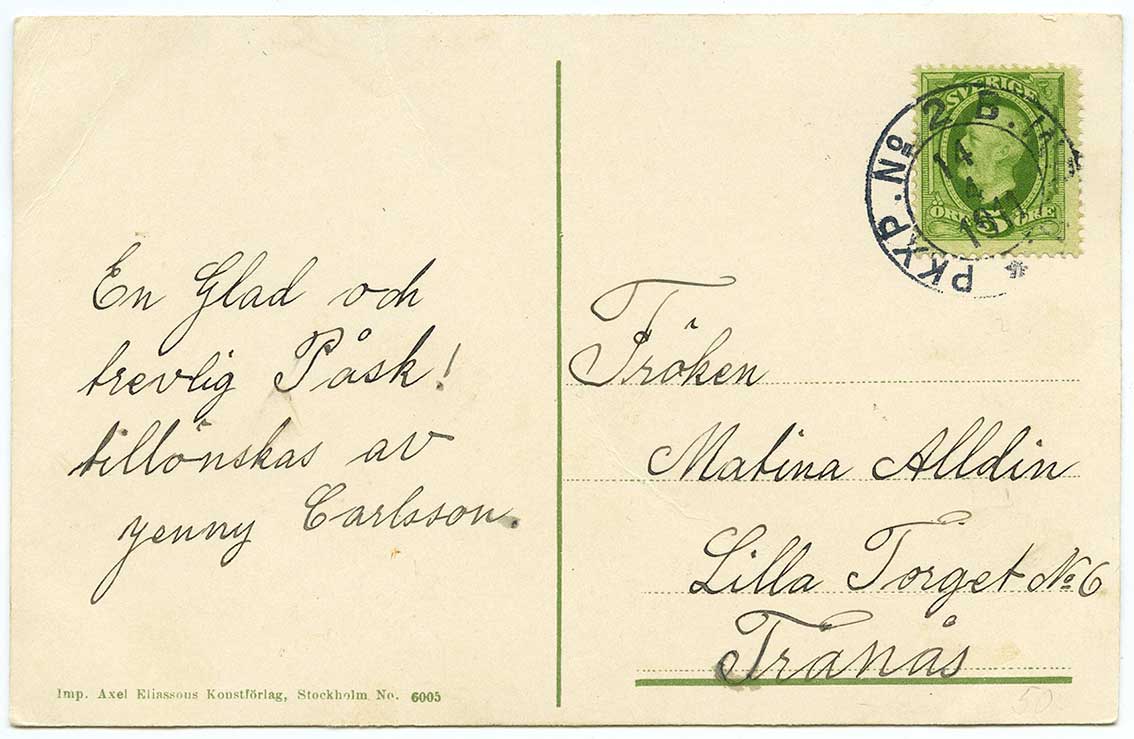 En Glad och
trevlig Påsk!
tillönskas av
Jenny Carlsson.
Imp. Axel Eliassons Konstförlag, Stockholm No. 6005
SVERIGE
ÖRE 5 ÖRE
PKXP. No 2 B.
14
4
1911
Fröken
Matina Alldin
Lilla Torget No 6
Tranås
50